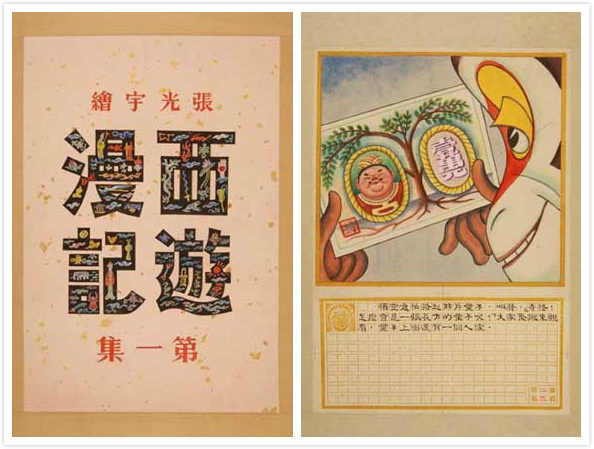 張光宇繪
西遊
漫記
第一集
悟空連忙拾起那片葉子，叫聲：「奇怪！
怎麼會是一張長方的葉子呢？」大家攏來觀
看，葉子上面還有一個人像。